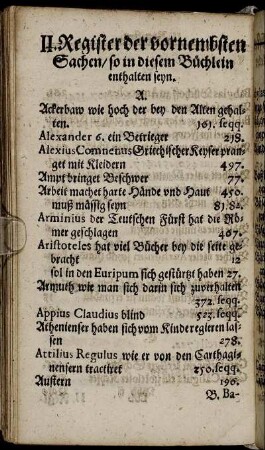 II. Register der vornembsten
Sachen / so in diesem Büchlein
enthalten seyn.
A.
Ackerbaw wie hoch der bey den Alten gehal-
ten. 161. seqq.
Alexander 6. ein Betrieger 218.
Alexius Comnenus Griechischer Keyser pran-
get mit Kleidern 497.
Ampt bringet Beschwer 77.
Arbeit machet harte Hände vnd Haut 450.
muß mässig seyn 81.82.
Arminius der Teutschen Fürst hat die Rö-
mer geschlagen 467.
Aristoteles hat viel Bücher bey die seite ge-
bracht 12
sol in den Euripum sich gestürtzt haben 27.
Armuth wie man sich darin sich zuverhalten
372. seqq.
Appius Claudius blind 525. seqq.
Athenienser haben sich vom Kinde regieren las-
sen 278.
Attilius Regulus wie er von den Carthagi-
nensern tractiret 250. seqq.
Austern 196.
B. Ba-